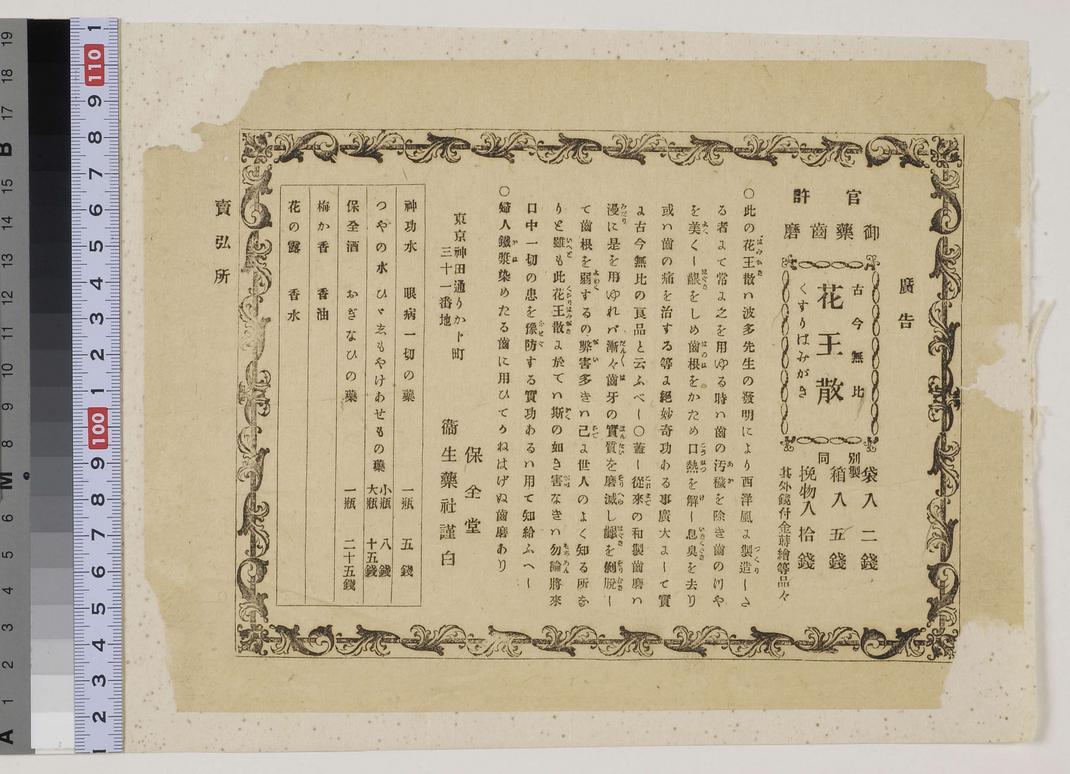 廣告
官許
御藥齒磨
古今無比
花王散
くすりはみがき
袋入 二錢
別製 箱入 五錢
同 挽物入 拾錢
其外錫付金蒔繪等品々
○此の花王散ハ波多先生の發明により西洋風ま製造しさ
る者まて常ま之を用ゆる時ハ齒の汚穢を除き齒のけや
を美くし齦をしめ齒根をかため口熱を解し息臭を去り
或ハ齒の痛を治する等ま絕妙奇功ある事廣大まして實
ま古今無比の良品と云ふべし○蓋し從來の和製齒磨ハ
漫に是を用ゆれバ漸々齒牙の實質を磨滅し齦を剝脫し
て齒根を弱するの弊害多きハ已ま世人のよく知る所な
りと雖も此花王散ま於てハ斯の如き害なきハ勿論將來
口中一切の患を豫防する實功あるハ用て知給ふへし
○婦人鐵漿染めたる齒に用ひてかねはげぬ齒磨あり
東京神田通りかト町
三十一番地
保全堂
衞生藥社謹白
神功水 眼病一切の藥 一瓶 五錢
つやの水 ひゞ志もやけあせもの藥 小瓶 八錢 大瓶 十五錢
保全酒 おぎなひの藥 一瓶 二十五錢
梅か香 香油
花の露 香水
賣弘所